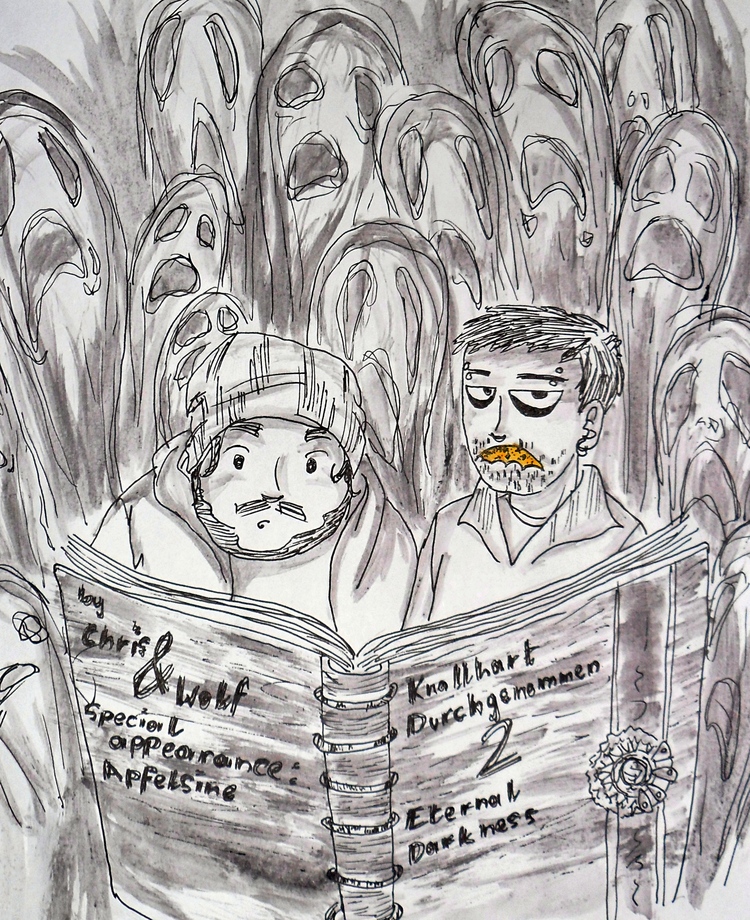 by
Chris
&
Wolf
Special
appearance:
Apfelsine
Knallhart
Durchgenommen
2
Eternal
Darkness